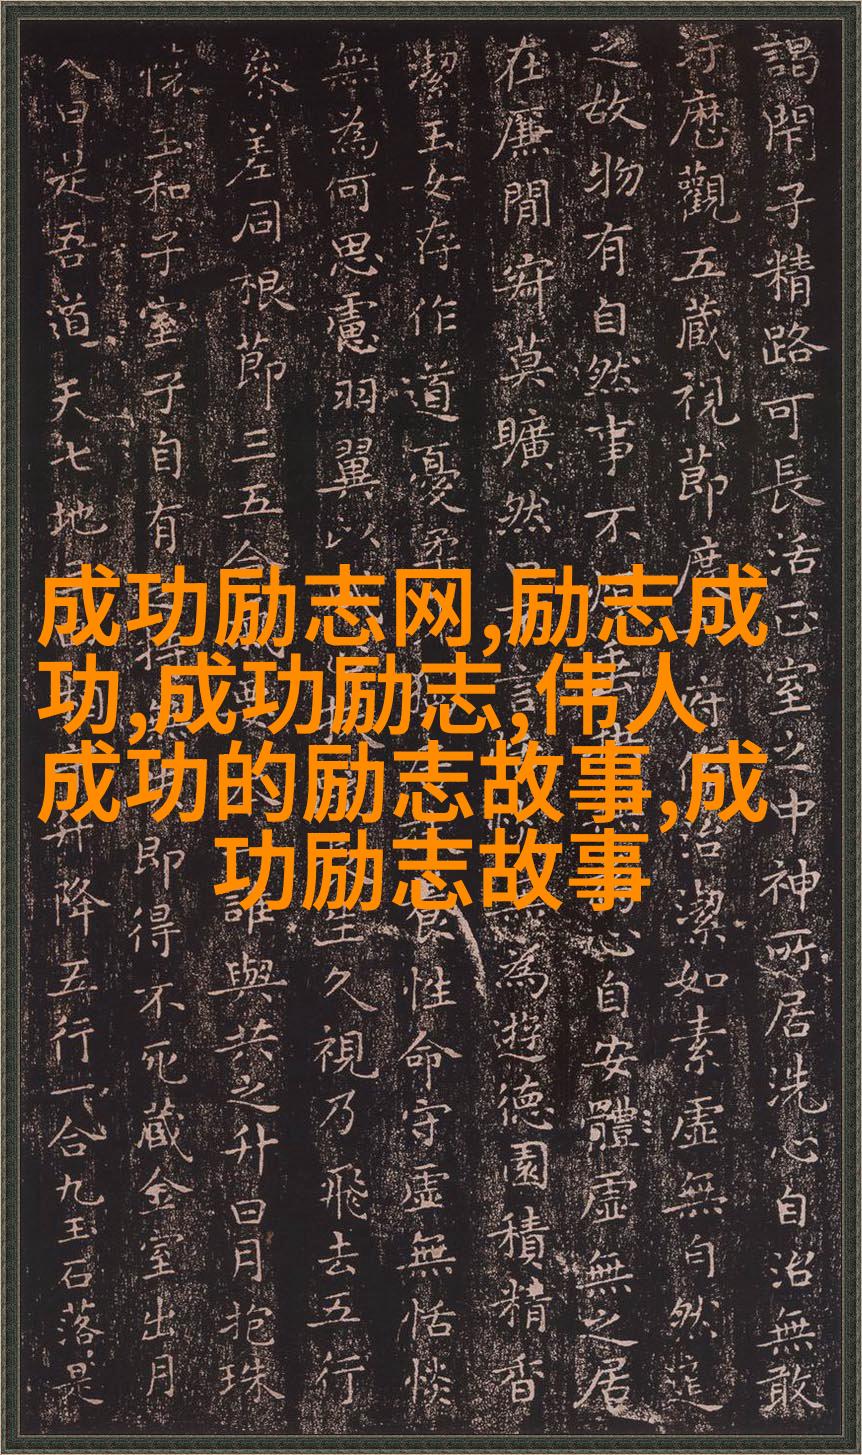 成功励志网,励志成
功,成功励志,伟人
成功的励志故事,成
功励志故事
謁閈子精路可長活正室之中神所居洗心自治無敢
歷觀五藏視節度府治潔如素虛無自然道
之故物有自然事不心自安體虛無之居
在廉閒寂莫曠然為遊德園積精香
潔玉女存作道憂柔性命守虛無恬惔
無為何思慮羽翼以生久視乃飛去五行
參差同根節三五合誰與共之升日月抱珠
懷玉和子室子自有即得不死藏金室出月
入日是吾道天七地升降五行一合九玉石落是